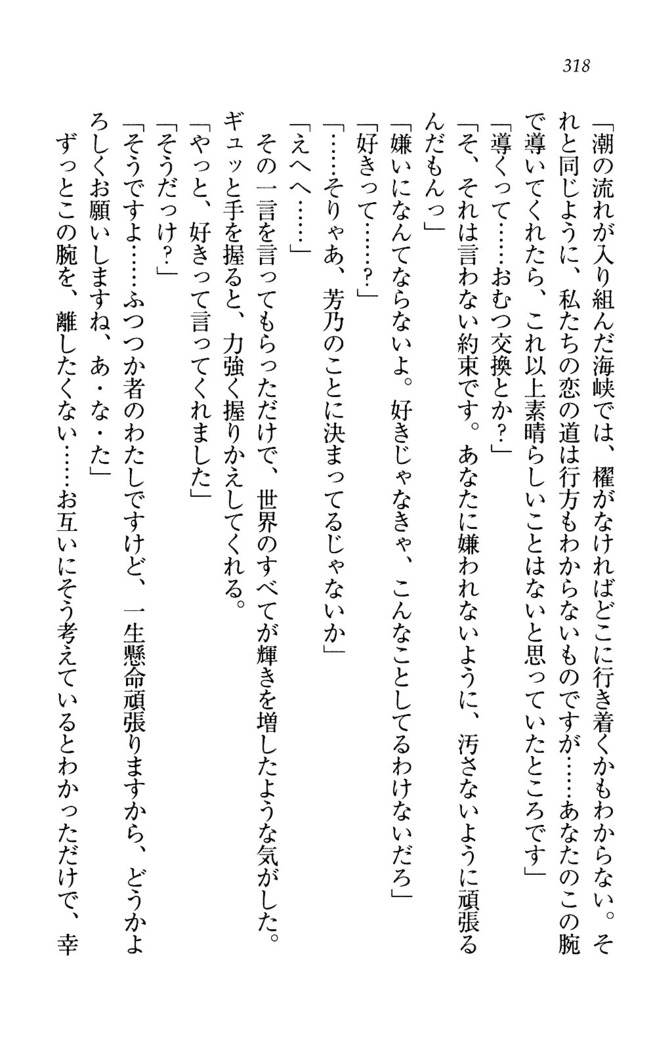 318
「潮の流れが入り組んだ海峡では、櫂がなければどこに行き着くかもわからない。そ
れと同じように、私たちの恋の道は行方もわからないものですが……あなたのこの腕
で導いてくれたら、これ以上素晴らしいことはないと思っていたところです」
「導くって……おむつ交換とか?」
「そ、それは言わない約束です。あなたに嫌われないように、汚さないように頑張る
んだもんっ」
「嫌いになんてならないよ。好きじゃなきゃ、こんなことしてるわけないだろ」
「好きって……?」
「……そりゃあ、芳乃のことに決まってるじゃないか」
「えへへ……」
その一言を言ってもらっただけで、世界のすべてが輝きを増したような気がした。
ギュッと手を握ると、力強く握りかえしてくれる。
「やっと、好きって言ってくれました」
「そうだっけ?」
「そうですよ……ふつつか者のわたしですけど、一生懸命頑張りますから、どうかよ
ろしくお願いしますね、あ・な・た」
ずっとこの腕を、離したくない……お互いにそう考えているとわかっただけで、幸